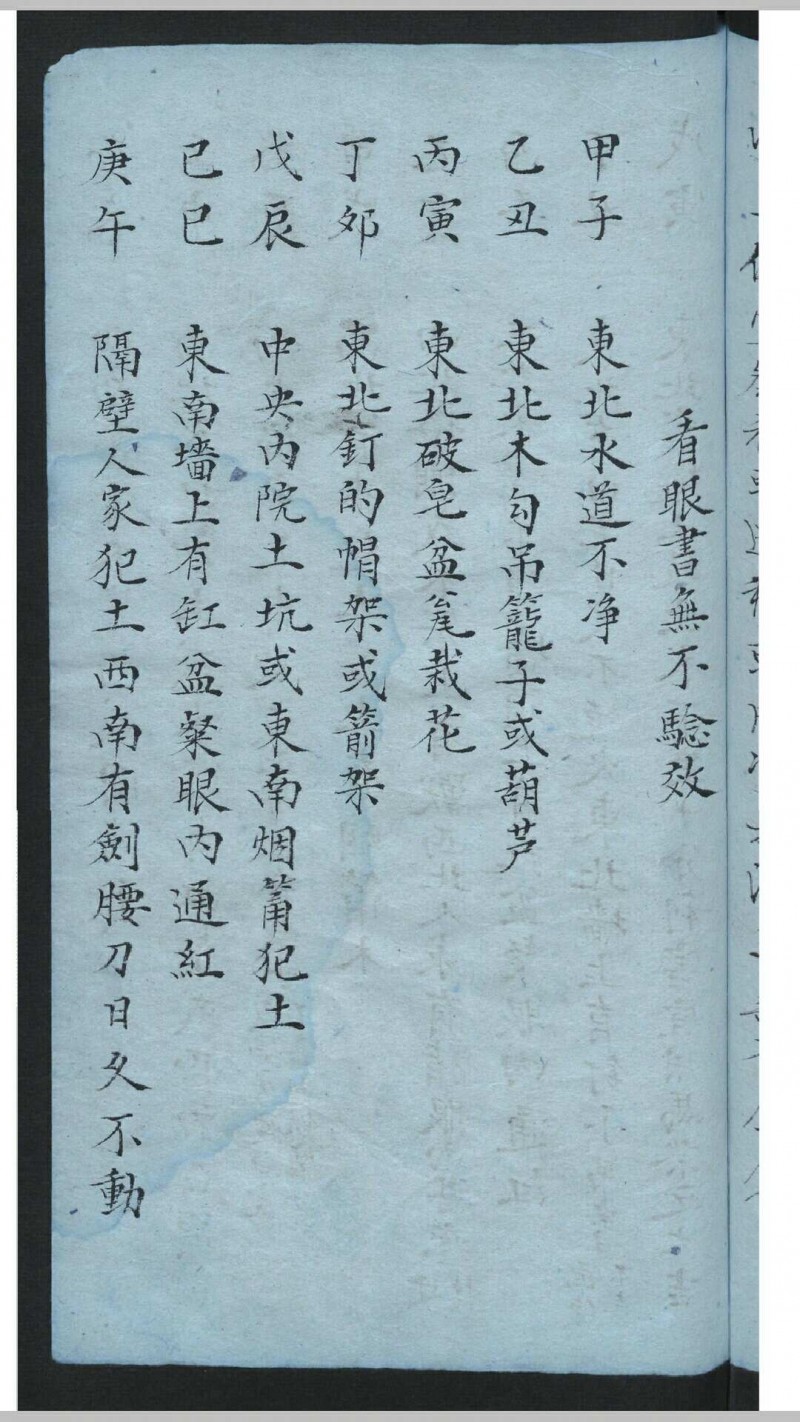 看眼書無不驗效
甲子 東北水道不净
乙丑 東北木勾吊籠子或葫芦
丙寅 東北破皂盆瓮栽花
丁夘 東北釘的帽架或箭架
戊辰 中央内院土坑或東南烟筩犯土
己巳 東南墻上有缸盆粲眼内通紅
庚午 隔壁人家犯土西南有劍腰刀日久不動